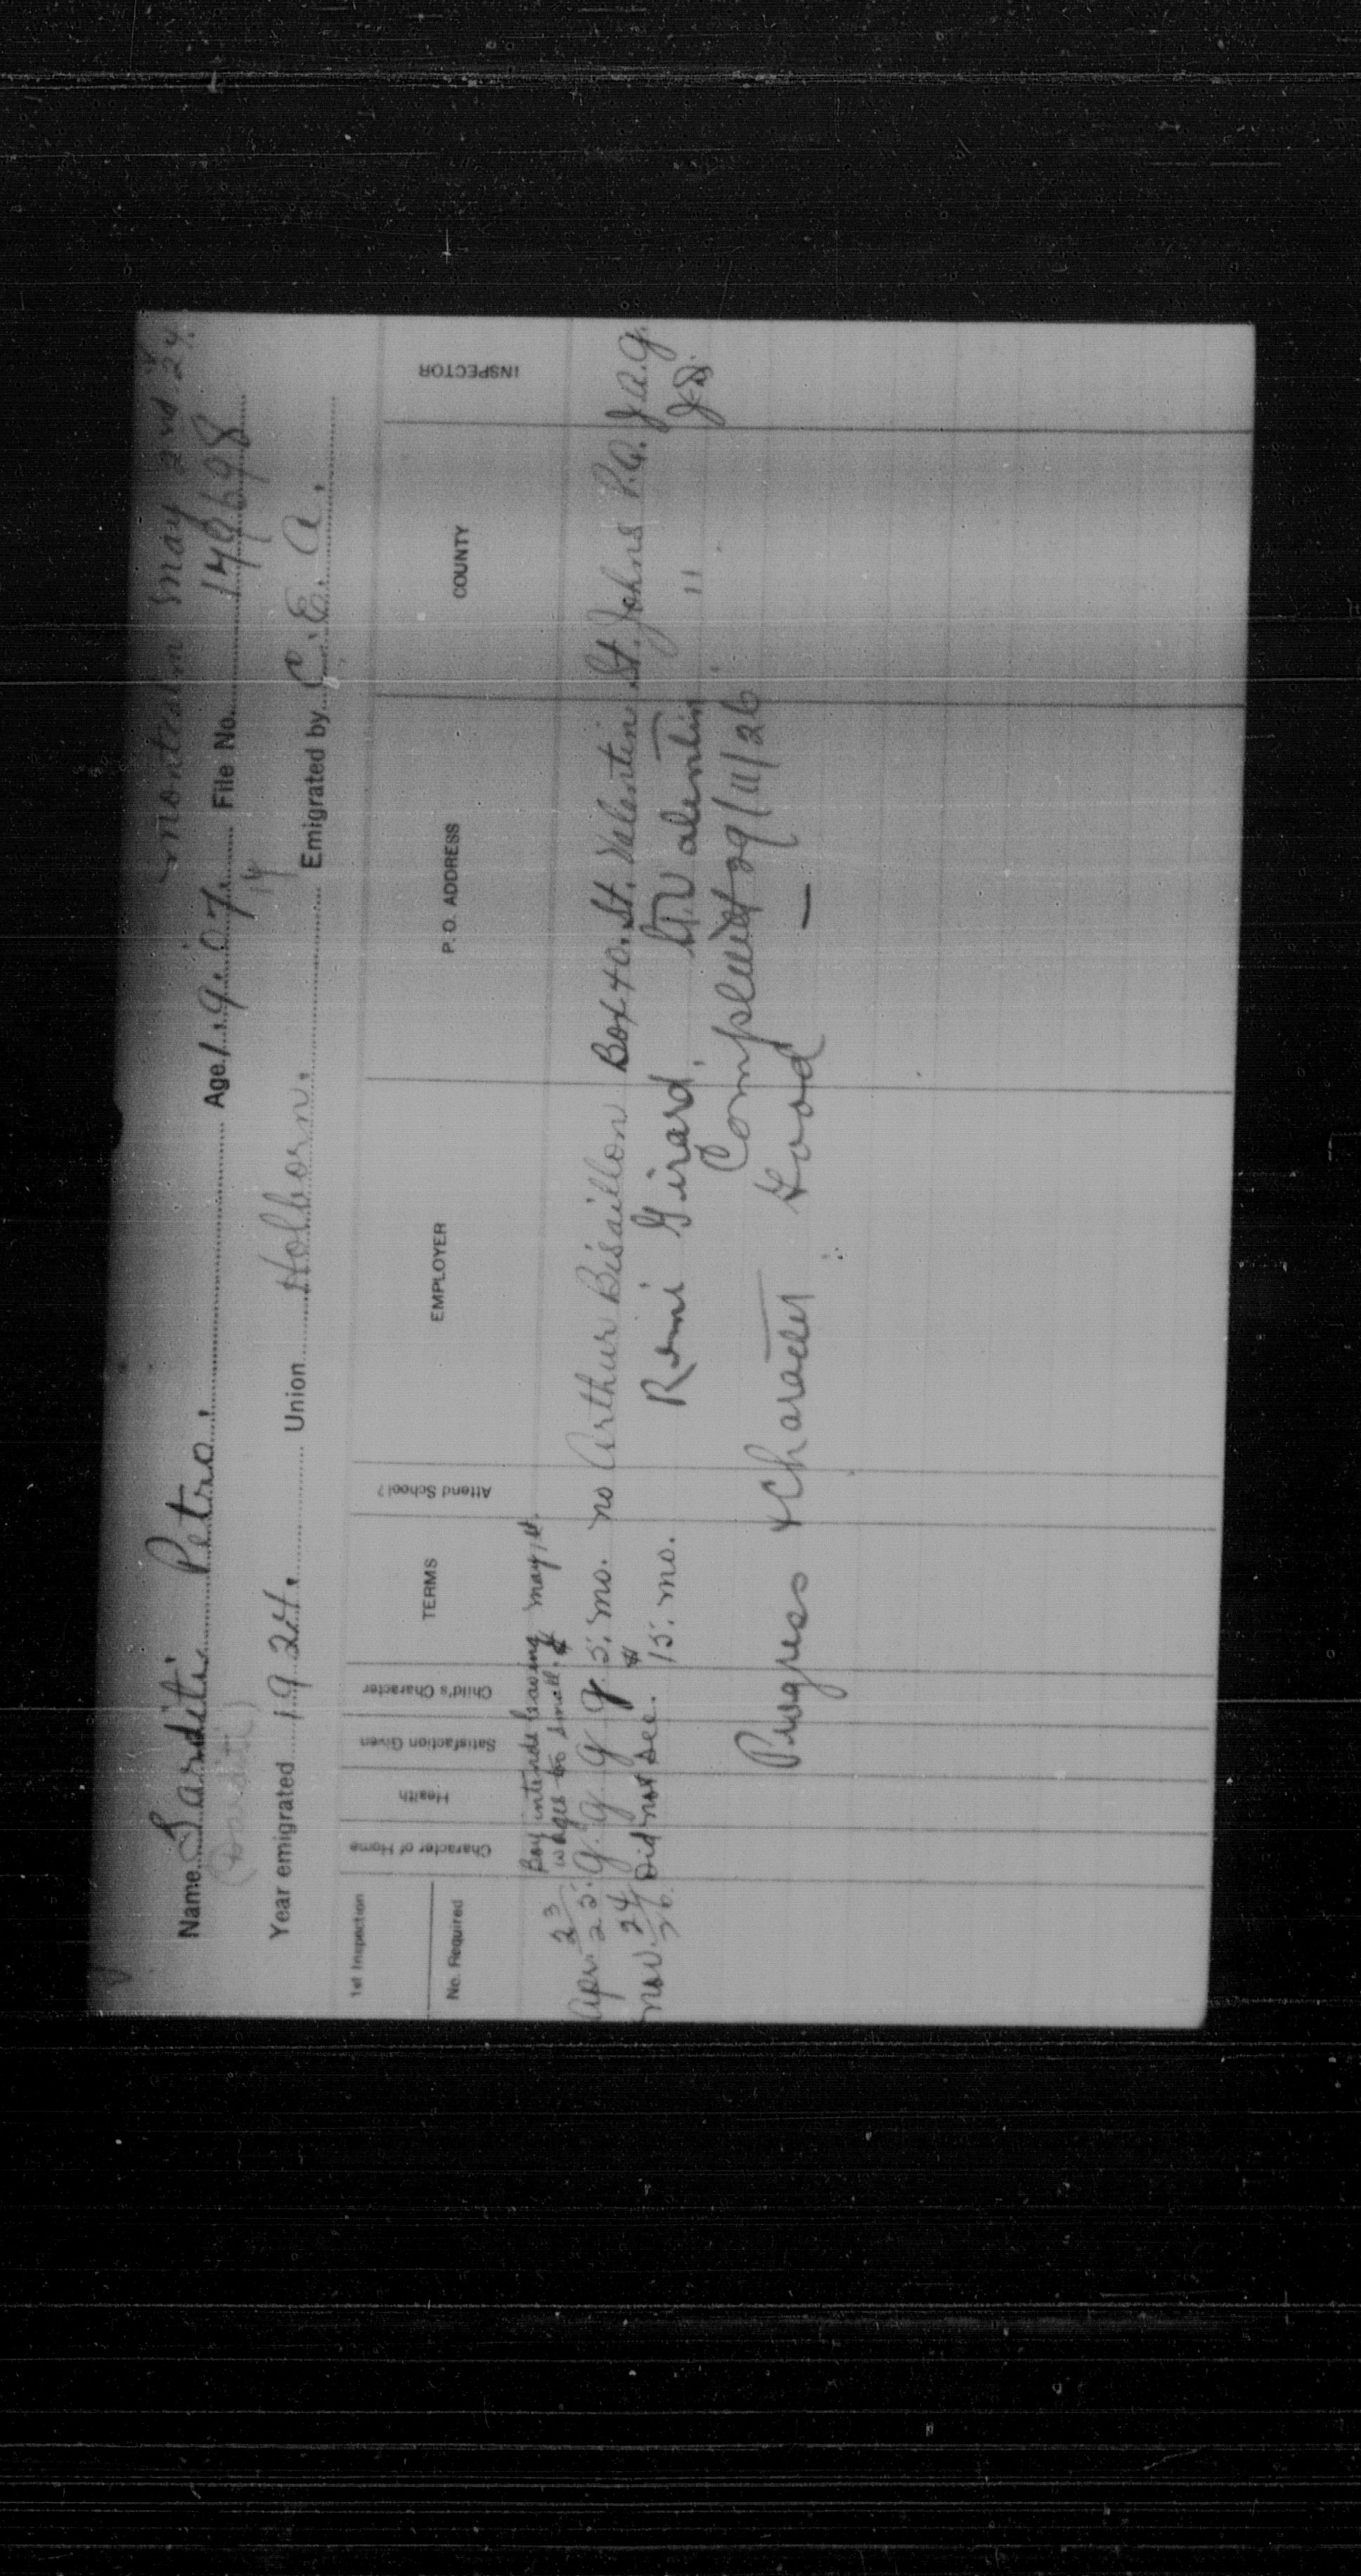 Montcalm May 2nd 24.
Name Sarditi Petro. Age 1.9.07. File No. 149698
(Darditi) 14
Year emigrated 1924. Union Holborn. Emigrated by C.E.A.
1st Inspection
No. Required
Character of Home
Health
Satisfaction Given
Child's Character
TERMS
Attend School?
EMPLOYER
P. O. ADDRESS
COUNTY
INSPECTOR
Boy intends leaving May 1st.
wages to small.
Apr. 23/25. G. G. G G $5. mo. no Arthur Bisaillon Box 40. St. Valentin St. Johns P.Q. J.A.G.
Nov. 24/26. Did not see. $15. mo. Remi Girard. St Valentin "
Completed 29/11/26
Progress & Character Good —